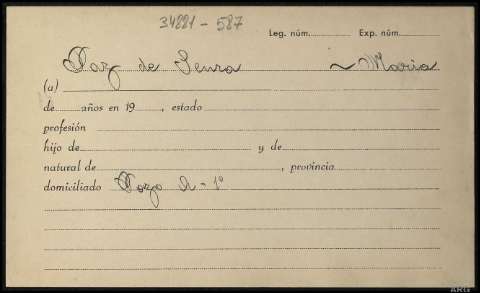 34881 - 587
Leg. núm. Exp. núm.
Paz de Senra ~ Maria
(a)
de años en 19 , estado
profesión
hijo de y de
natural de , provincia
domiciliado Pozo - 1º
ARG